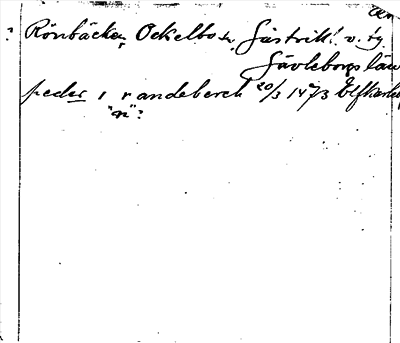 ? Rönbäcken, Ockelbo sn, Gästrikl. v. fg.
Gävleborgs län
peder i randeberch 20/3 1473
"n"?